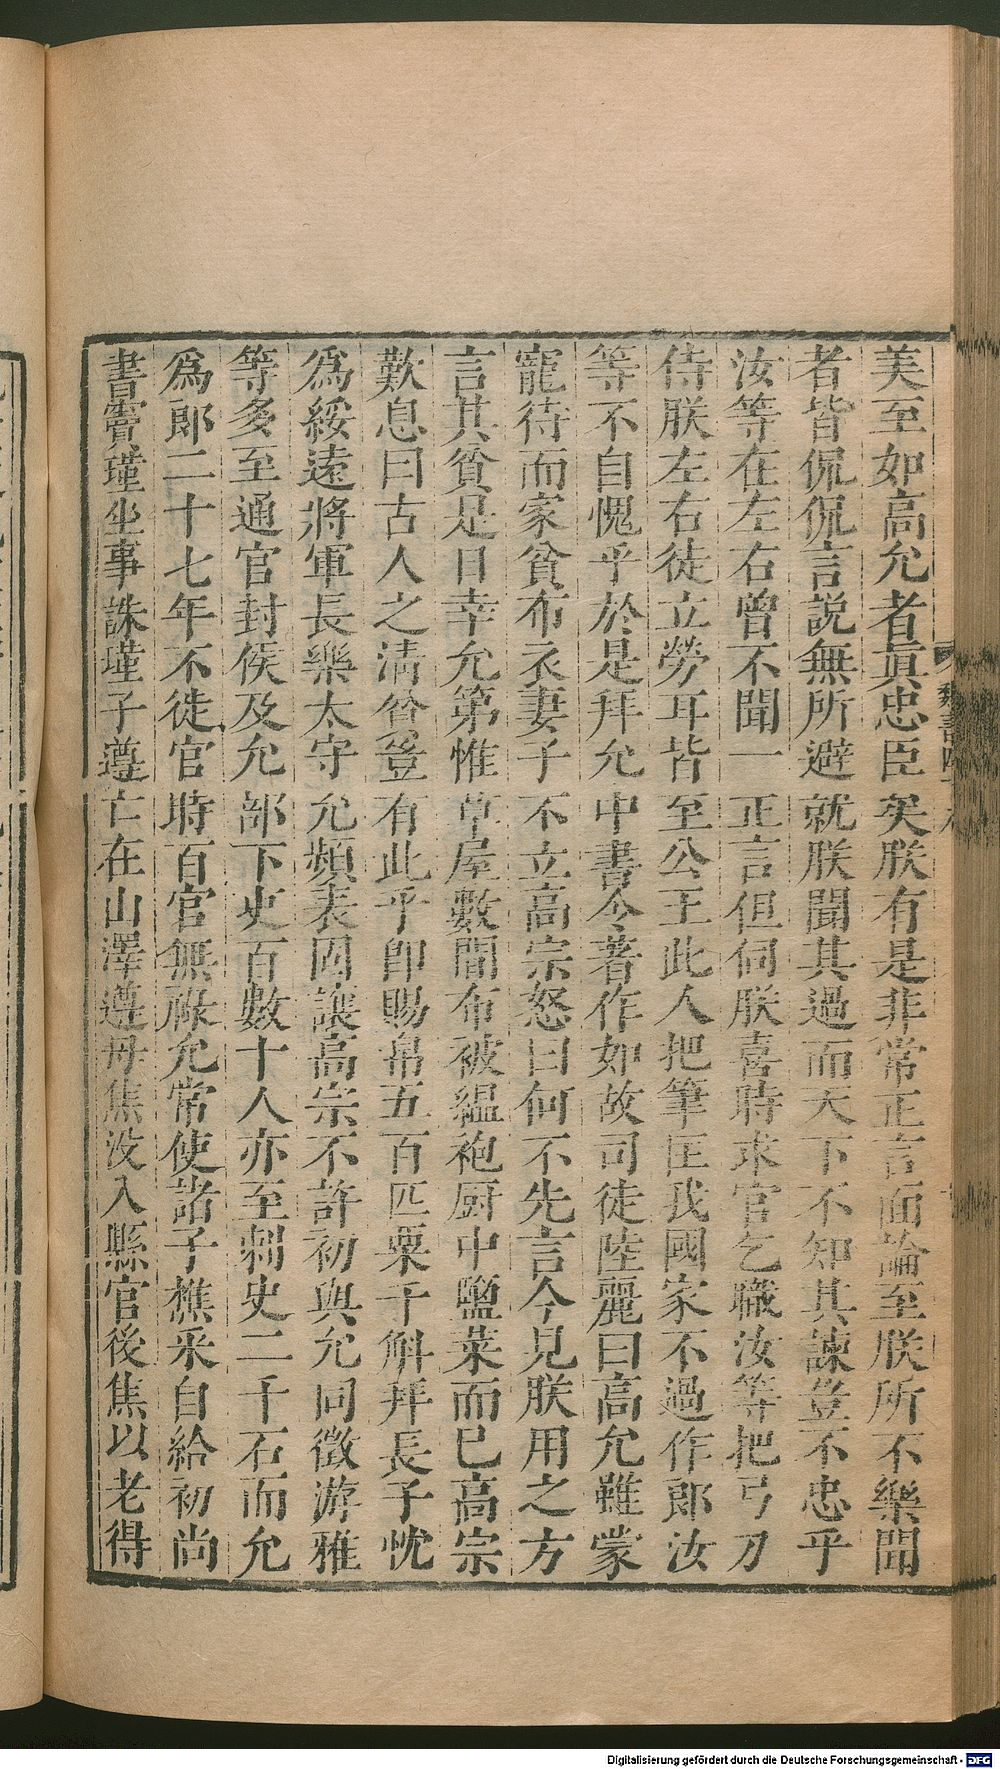 美至如高允者眞忠臣矣朕有是非常正言面論至朕所不樂聞
者皆侃侃言說無所避就朕聞其過而天下不知其諫豈不忠乎
汝等在左右曾不聞一正言但伺朕喜時求官乞職汝等把弓刀
侍朕左右徒立勞耳皆至公王此人把筆匡我國家不過作郎汝
等不自愧乎於是拜允中書令著作如故司徒陸麗曰高允雖蒙
寵待而家貧布衣妻子不立高宗怒曰何不先言今見朕用之方
言其貧是日幸允第惟草屋數間布被縕袍厨中鹽菜而已高宗
歎息曰古人之清貧豈有此乎卽賜帛五百匹粟千斛拜長子忱
爲綏遠將軍長樂太守允頻表固讓高宗不許初與允同徵游雅
等多至通官封侯及允部下吏百數十人亦至刺史二千石而允
爲郎二十七年不徙官時百官無祿允常使諸子樵采自給初尚
書竇瑾坐事誅瑾子遵亡在山澤遵母焦没入縣官後焦以老得
魏書
Digitalisierung gefördert durch die Deutsche Forschungsgemeinschaft - DFG